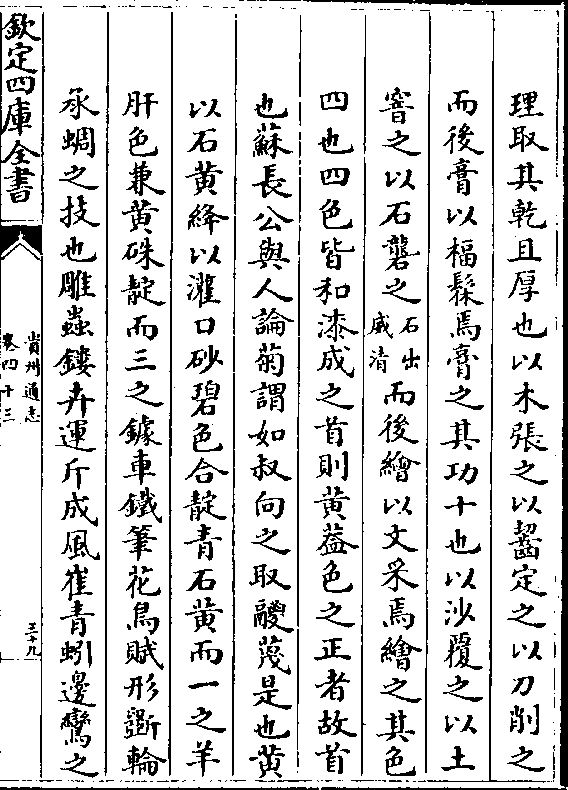 理取其乾且厚也以木張之以齧定之以刀削之
而後膏以楅髹焉膏之其功十也以沙覆之以土
窨之以石礱之石出威清而後繪以文采焉繪之其色
四也四色皆和漆成之首則黄葢色之正者故首
也蘇長公與人論菊謂如叔向之取鬷蔑是也黄
以石黄絳以灌口砂碧色合靛青石黄而一之羊
肝色兼黄硃靛而三之鏤車鐵筆花鳥賦形斵輪
承蜩之技也雕蟲鏤卉運斤成風崔青蚓邊鸞之
欽定四庫全書
貴州通志
卷四十三
三十九